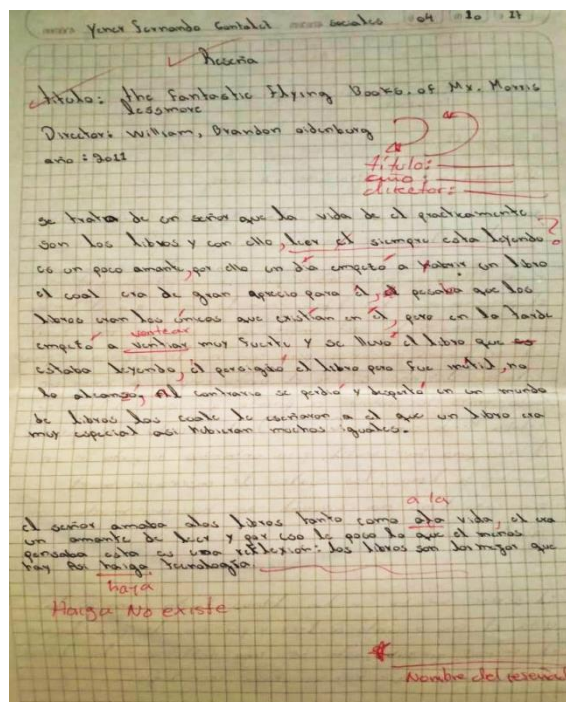 Yener Fernando
sociales 04 10 21
Reseña
título: the Fantastic Flying Books. of Mr. Morris
lessmore
Director: William, Brandon oldenburg
año: 2011
título:
año:
director:
se trata de un señor que la vida de el practicamente
son los libros y con ello, leer el siempre esta leyendo
es un poco amante, por ello un día empezó a abrir un libro
el cual era de gran aprecio para él, pesaba que los
libros eran los únicos que existían en él, pero en la tarde
ventear
empezó a ventiar muy fuerte y se llevó el libro que
estaba leyendo, el persiguió el libro pero fue inútil, no
lo alcanzó, Al contrario se perdió y despertó en un mundo
de libros los cuale le enseñaron a el que un libro era
muy especial asi hubieran muchos iguales.
a la
el señor amaba alos libros tanto como ala vida, el era
un amante de leer y por eso le paso lo que el menos
pensaba esta es una reflexion: los libros son lo mejor que
hay Asi haiga tecnología.
haya
Haiga No existe
Nombre del reseñad